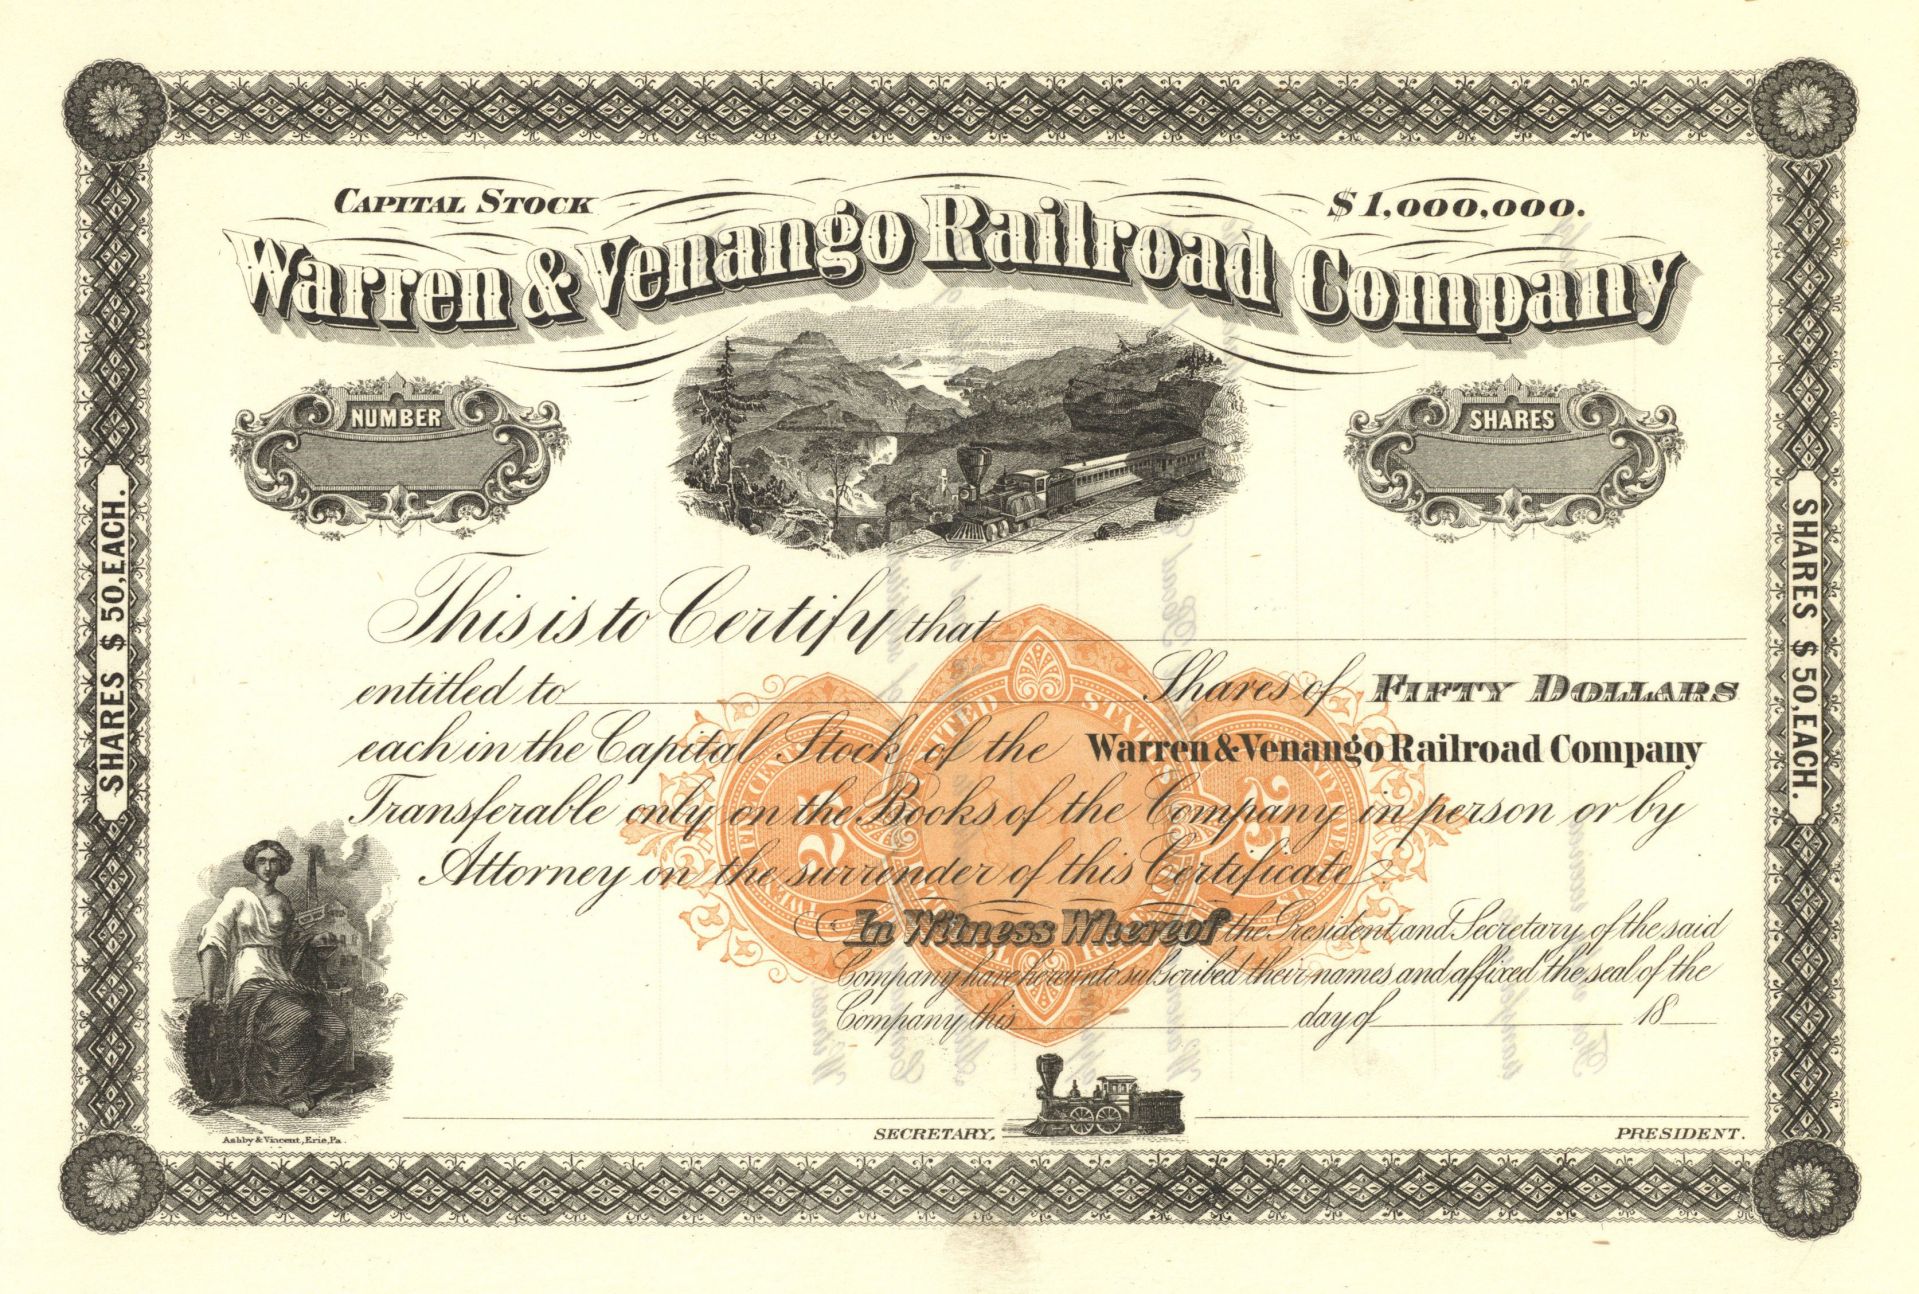 CAPITAL STOCK $1,000,000.
Warren & Venango Railroad Company
NUMBER
SHARES
SHARES $50, EACH.
SHARES $50, EACH.
This is to Certify that
entitled to Shares of FIFTY DOLLARS
each in the Capital Stock of the Warren & Venango Railroad Company
Transferable only on the Books of the Company in person or by
Attorney on the surrender of this Certificate
In Witness Whereof the President and Secretary of the said
Company have hereunto subscribed their names and affixed the seal of the
Company this day of 18
SECRETARY.
PRESIDENT.
Ashby & Vincent, Erie, Pa.
UNITED STATES
25
25